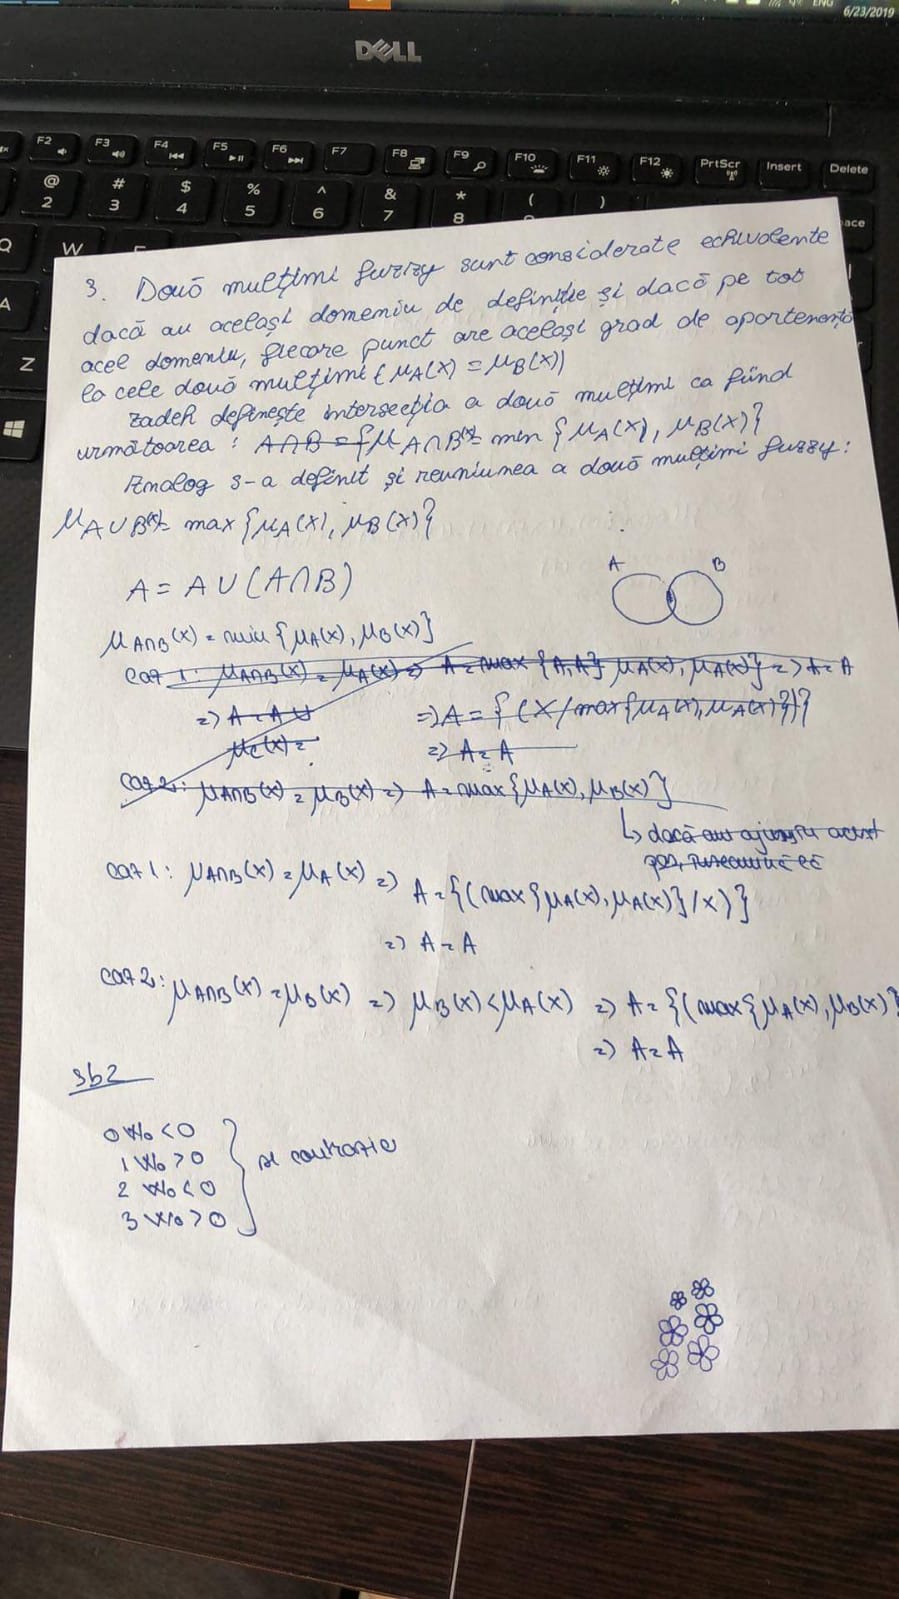 ENG
6/23/2019
DELL
F2 F3 F4 F5 F6 F7 F8 F9 F10 F11 F12 PrtScr Insert Delete
@ # $ % ^ & * ( )
2 3 4 5 6 7 8
Q W
A
Z
3. Două mulțimi fuzzy sunt considerate echivalente
dacă au același domeniu de definiție și dacă pe tot
acel domeniu, fiecare punct are același grad de apartenență
la cele două mulțimi (μA(x) = μB(x))
Zadeh definește intersecția a două mulțimi ca fiind
următoarea : A∩B = {μA∩B(x) = min {μA(x), μB(x)}
Analog s-a definit și reuniunea a două mulțimi fuzzy:
μA∪B(x) = max {μA(x), μB(x)}
A = A∪(A∩B)
A B
μA∩B(x) = min {μA(x), μB(x)}
caz 1: μA∩B(x) = μA(x) => A = max {A, A} μA(x), μA(x)} => A = A
=> A = A ∪ => A = {(x/max{μA(x), μA(x)})}
μC(x) = => A = A
caz 2: μA∩B(x) = μB(x) => A = max{μA(x), μB(x)}
↳ dacă am ajuns la acest
pas, înseamnă că
caz 1: μA∩B(x) = μA(x) => A = {(max{μA(x), μA(x)}/x)}
=> A = A
caz 2: μA∩B(x) = μB(x) => μB(x) < μA(x) => A = {(max{μA(x), μB(x)}
=> A = A
sb2
0 W0 < 0
1 W0 > 0
2 W0 < 0
3 W0 > 0